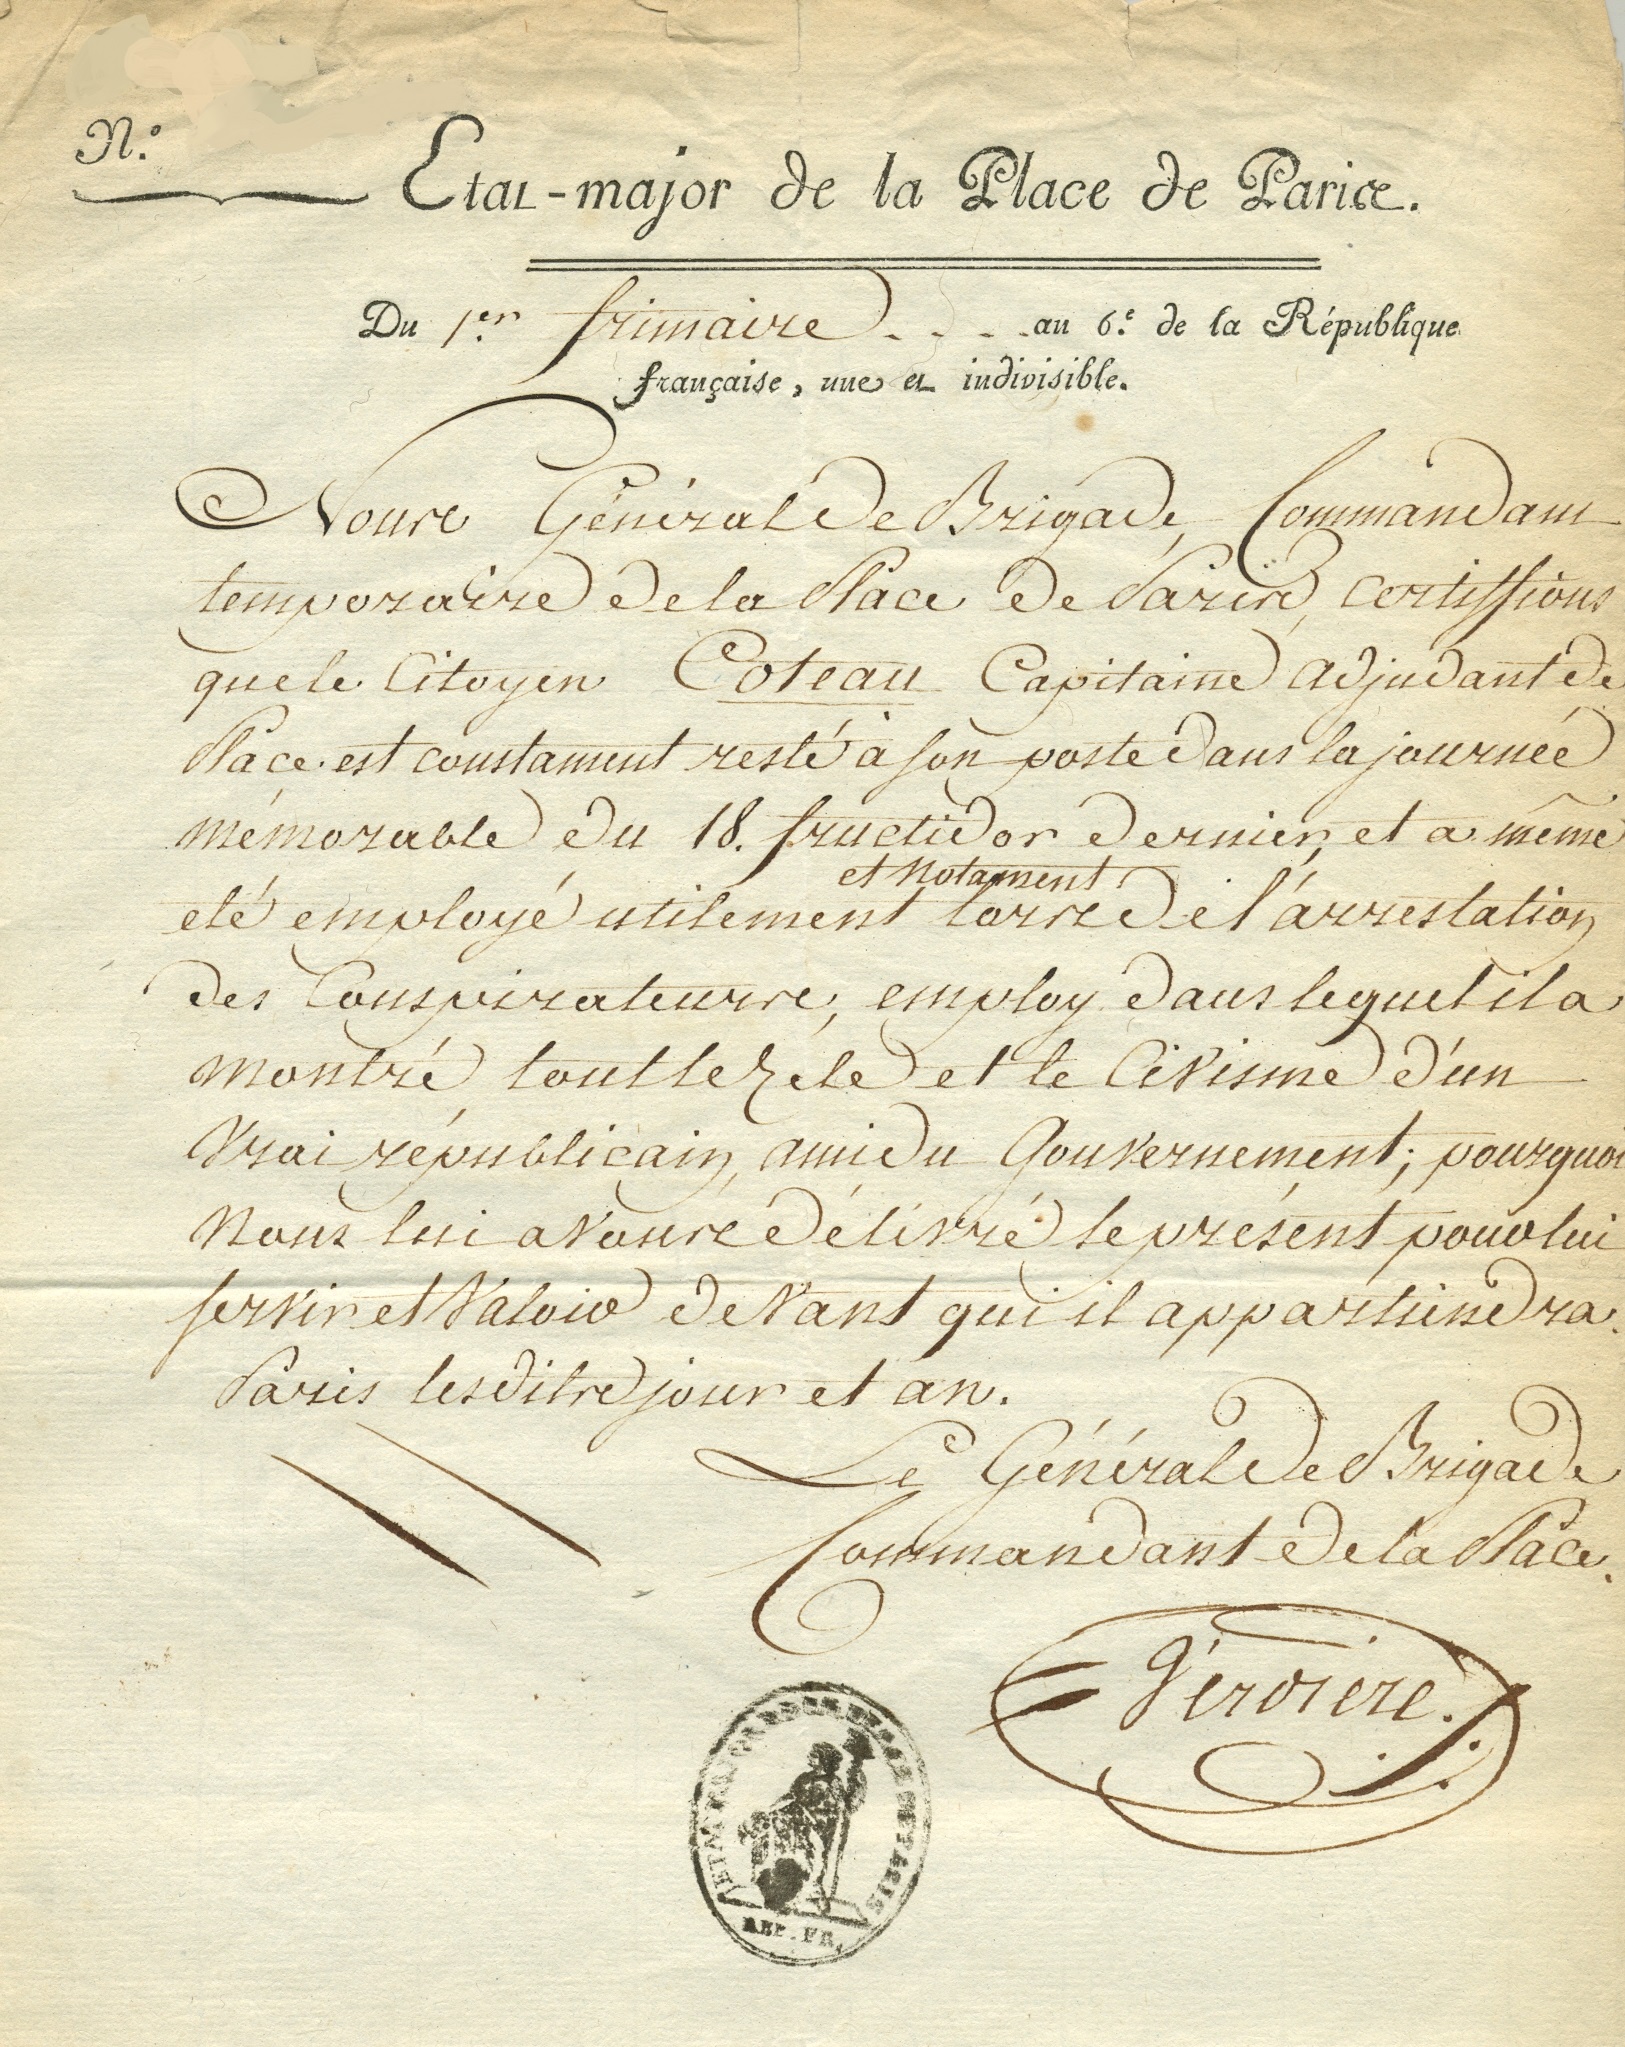 N.o
Etat-major de la Place de Paris.
Du 1.er frimaire . . . . an 6.e de la République
française, une et indivisible.
Nous Général de Brigade, Commandant
temporaire de la Place de Paris, certiffions
que le Citoyen Coteau Capitaine adjudant de
Place est constament resté à son poste dans la journée
mémorable du 18. fructidor dernier, et a même
et notament
eté employé utilement lors de l'arrestation
des Conspirateurs, employ dans lequel il a
montré tout le Zele et le Civisme d'un
vrai républicain, ami du Gouvernement; pourquoi
Nous lui avons délivré le présent pour lui
servir et valoir devant qui il appartiendra.
Paris les dits jour et an.
Le Général de Brigade
Commandant de la Place.
Verdiere.
REP. FR.